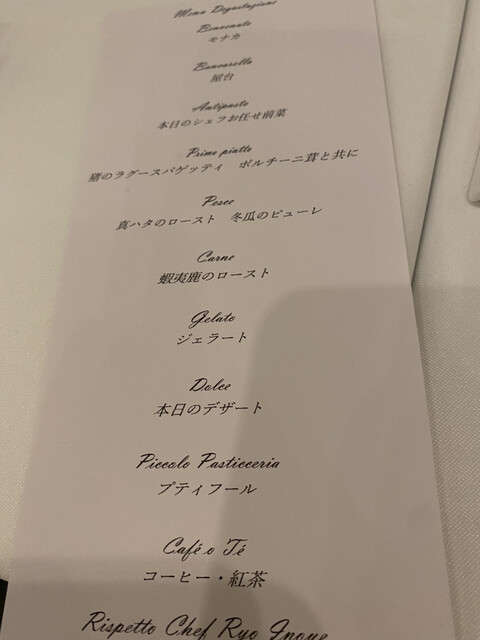 Menu Degustazione
Benvenuto
モナカ
Bancarella
屋台
Antipasto
本日のシェフお任せ前菜
Primo piatto
猪のラグースパゲッティ　ポルチーニ茸と共に
Pesce
真ハタのロースト　冬瓜のピューレ
Carne
蝦夷鹿のロースト
Gelato
ジェラート
Dolce
本日のデザート
Piccolo Pasticceria
プティフール
Café o Té
コーヒー・紅茶
Rispetto Chef Ryo Inoue